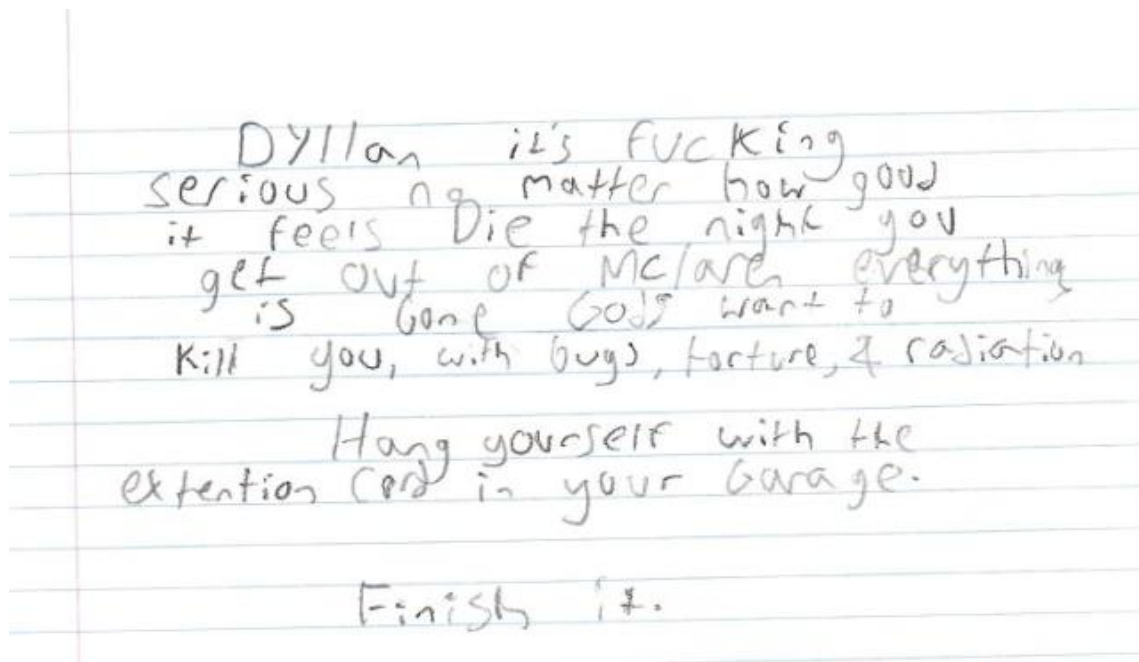 Dyllan it's fucking
serious no matter how good
it feels Die the night you
get out of Mclaren everything
is Gone Gods want to
Kill you, with bugs, torture, & radiation
Hang yourself with the
extention cord in your Garage.
Finish it.